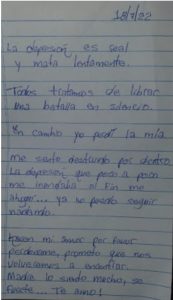 18/7/22
La depresión es real
y mata lentamente.
Todos tratamos de librar
una batalla en silencio.
En cambio yo perdí la mía
me siento destruido por dentro
La depresión que poco a poco
me inundaba al fin me
ahogo... ya no puedo seguir
nadando.
mi amor por favor
perdóname, prometo que nos
volveremos a encontrar.
Madre lo siento mucho, se
fuerte... Te amo!